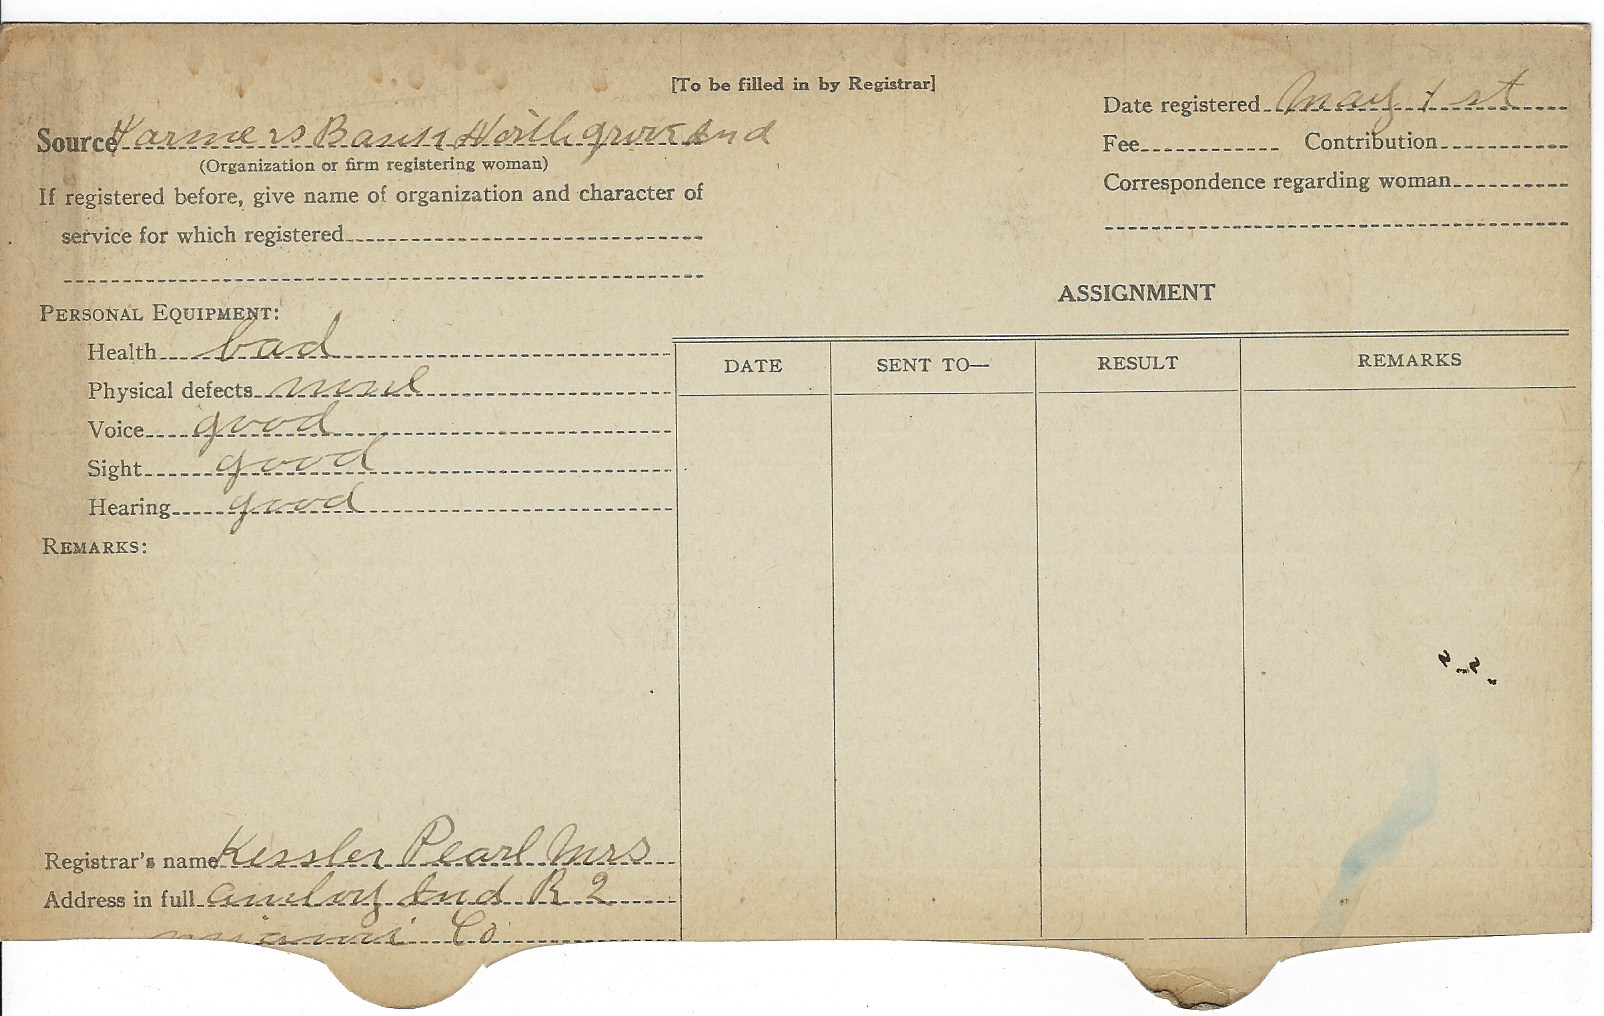 [To be filled in by Registrar]
Date registered May 1 st
Source Farmers Bank North grove Ind
(Organization or firm registering woman)
Fee Contribution
If registered before, give name of organization and character of
service for which registered
Correspondence regarding woman
ASSIGNMENT
PERSONAL EQUIPMENT:
Health bad
Physical defects none
Voice good
Sight good
Hearing good
DATE SENT TO— RESULT REMARKS
REMARKS:
Registrar's name Kessler Pearl Mrs
Address in full amboy Ind R 2
miami Co